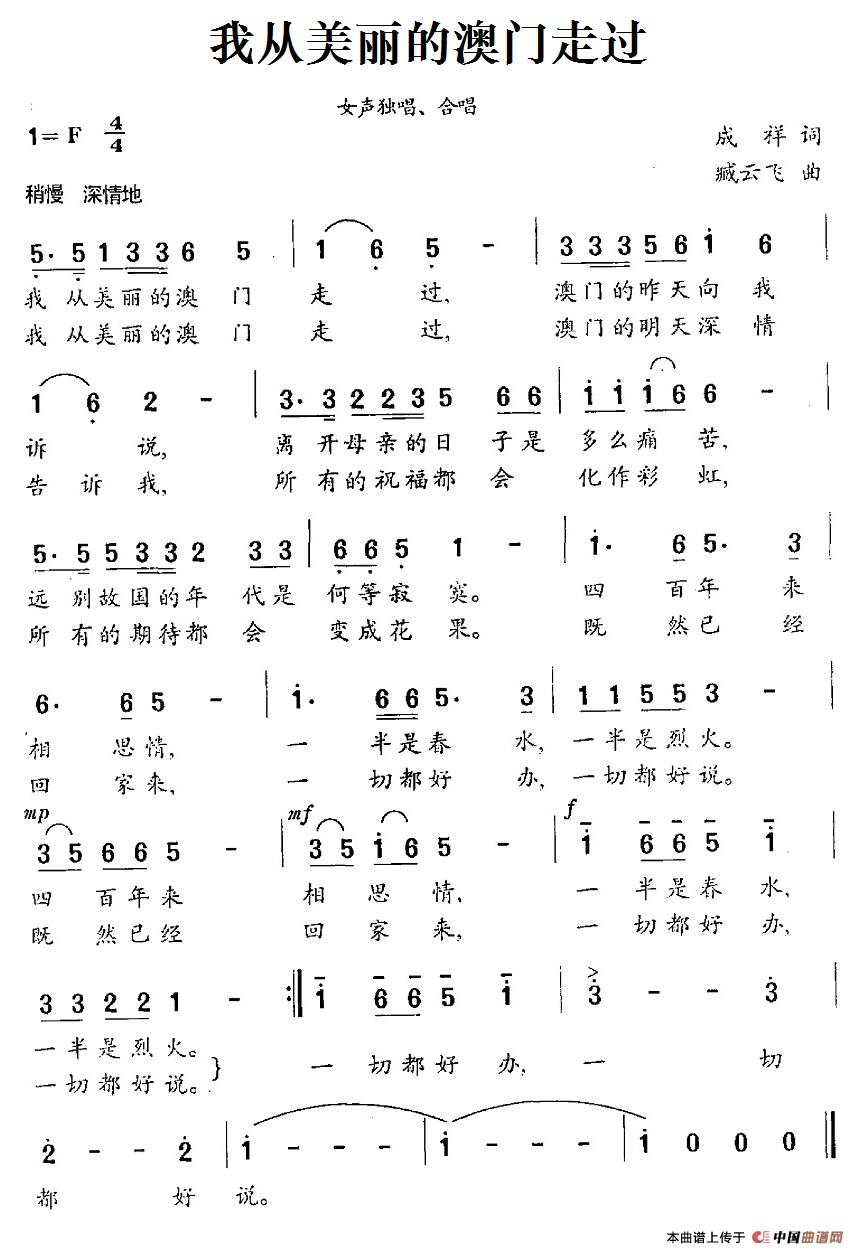 我从美丽的澳门走过
女声独唱、合唱
1=F 4/4
成祥词
臧云飞曲
稍慢 深情地
5· 5 1 3 3 6 5 | 1 6 5 - | 3 3 3 5 6 1 6 |
我从美丽的澳门走过,澳门的昨天向我
我从美丽的澳门走过,澳门的明天深情
1 6 2 - | 3· 3 2 2 3 5 6 6 | 1 1 1 6 6 - |
诉说,离开母亲的日子是多么痛苦,
告诉我,所有的祝福都会化作彩虹,
5· 5 5 3 3 2 3 3 | 6 6 5 1 - | 1· 6 5· 3 |
远别故国的年代是何等寂寞。四百年来
所有的期待都会变成花果。既然已经
6· 6 5 - | 1· 6 6 5· 3 | 1 1 5 5 3 - |
相思情,一半是春水,一半是烈火。
回家来,一切都好办,一切都好说。
mp mf f
3 5 6 6 5 - | 3 5 1 6 5 - | 1 6 6 5 1 |
四百年来相思情,一半是春水,
既然已经回家来,一切都好办,
3 3 2 2 1 - :| 1 6 6 5 1 | 3 - - 3 |
一半是烈火。
一切都好说。} 一切都好办,一切
2 - - 2 | 1 - - - | 1 - - - | 1 0 0 0 ‖
都好说。
本曲谱上传于 中国曲谱网